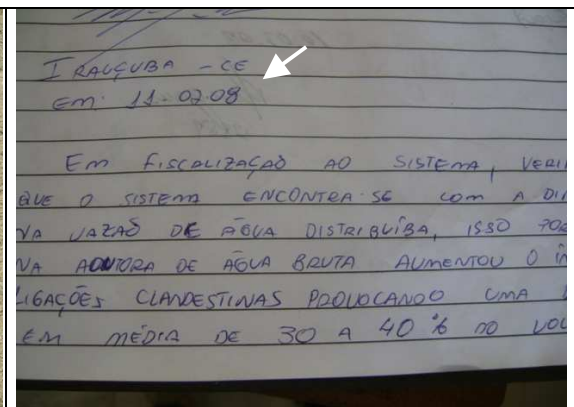 IRAUÇUBA - CE
Em: 11.02.08
Em FISCALIZAÇAÕ AO SISTEMA, VERI
QUE O SISTEMA ENCONTRA-SE COM A DI
NA VAZAÕ DE ÁGUA DISTRIBUÍBA, ISSO
NA ADUTORA DE ÁGUA BRUTA AUMENTOU O
LIGAÇÕES CLANDESTINAS PROVOCANDO UMA
EM MÉDIA DE 30 A 40% DO VOL